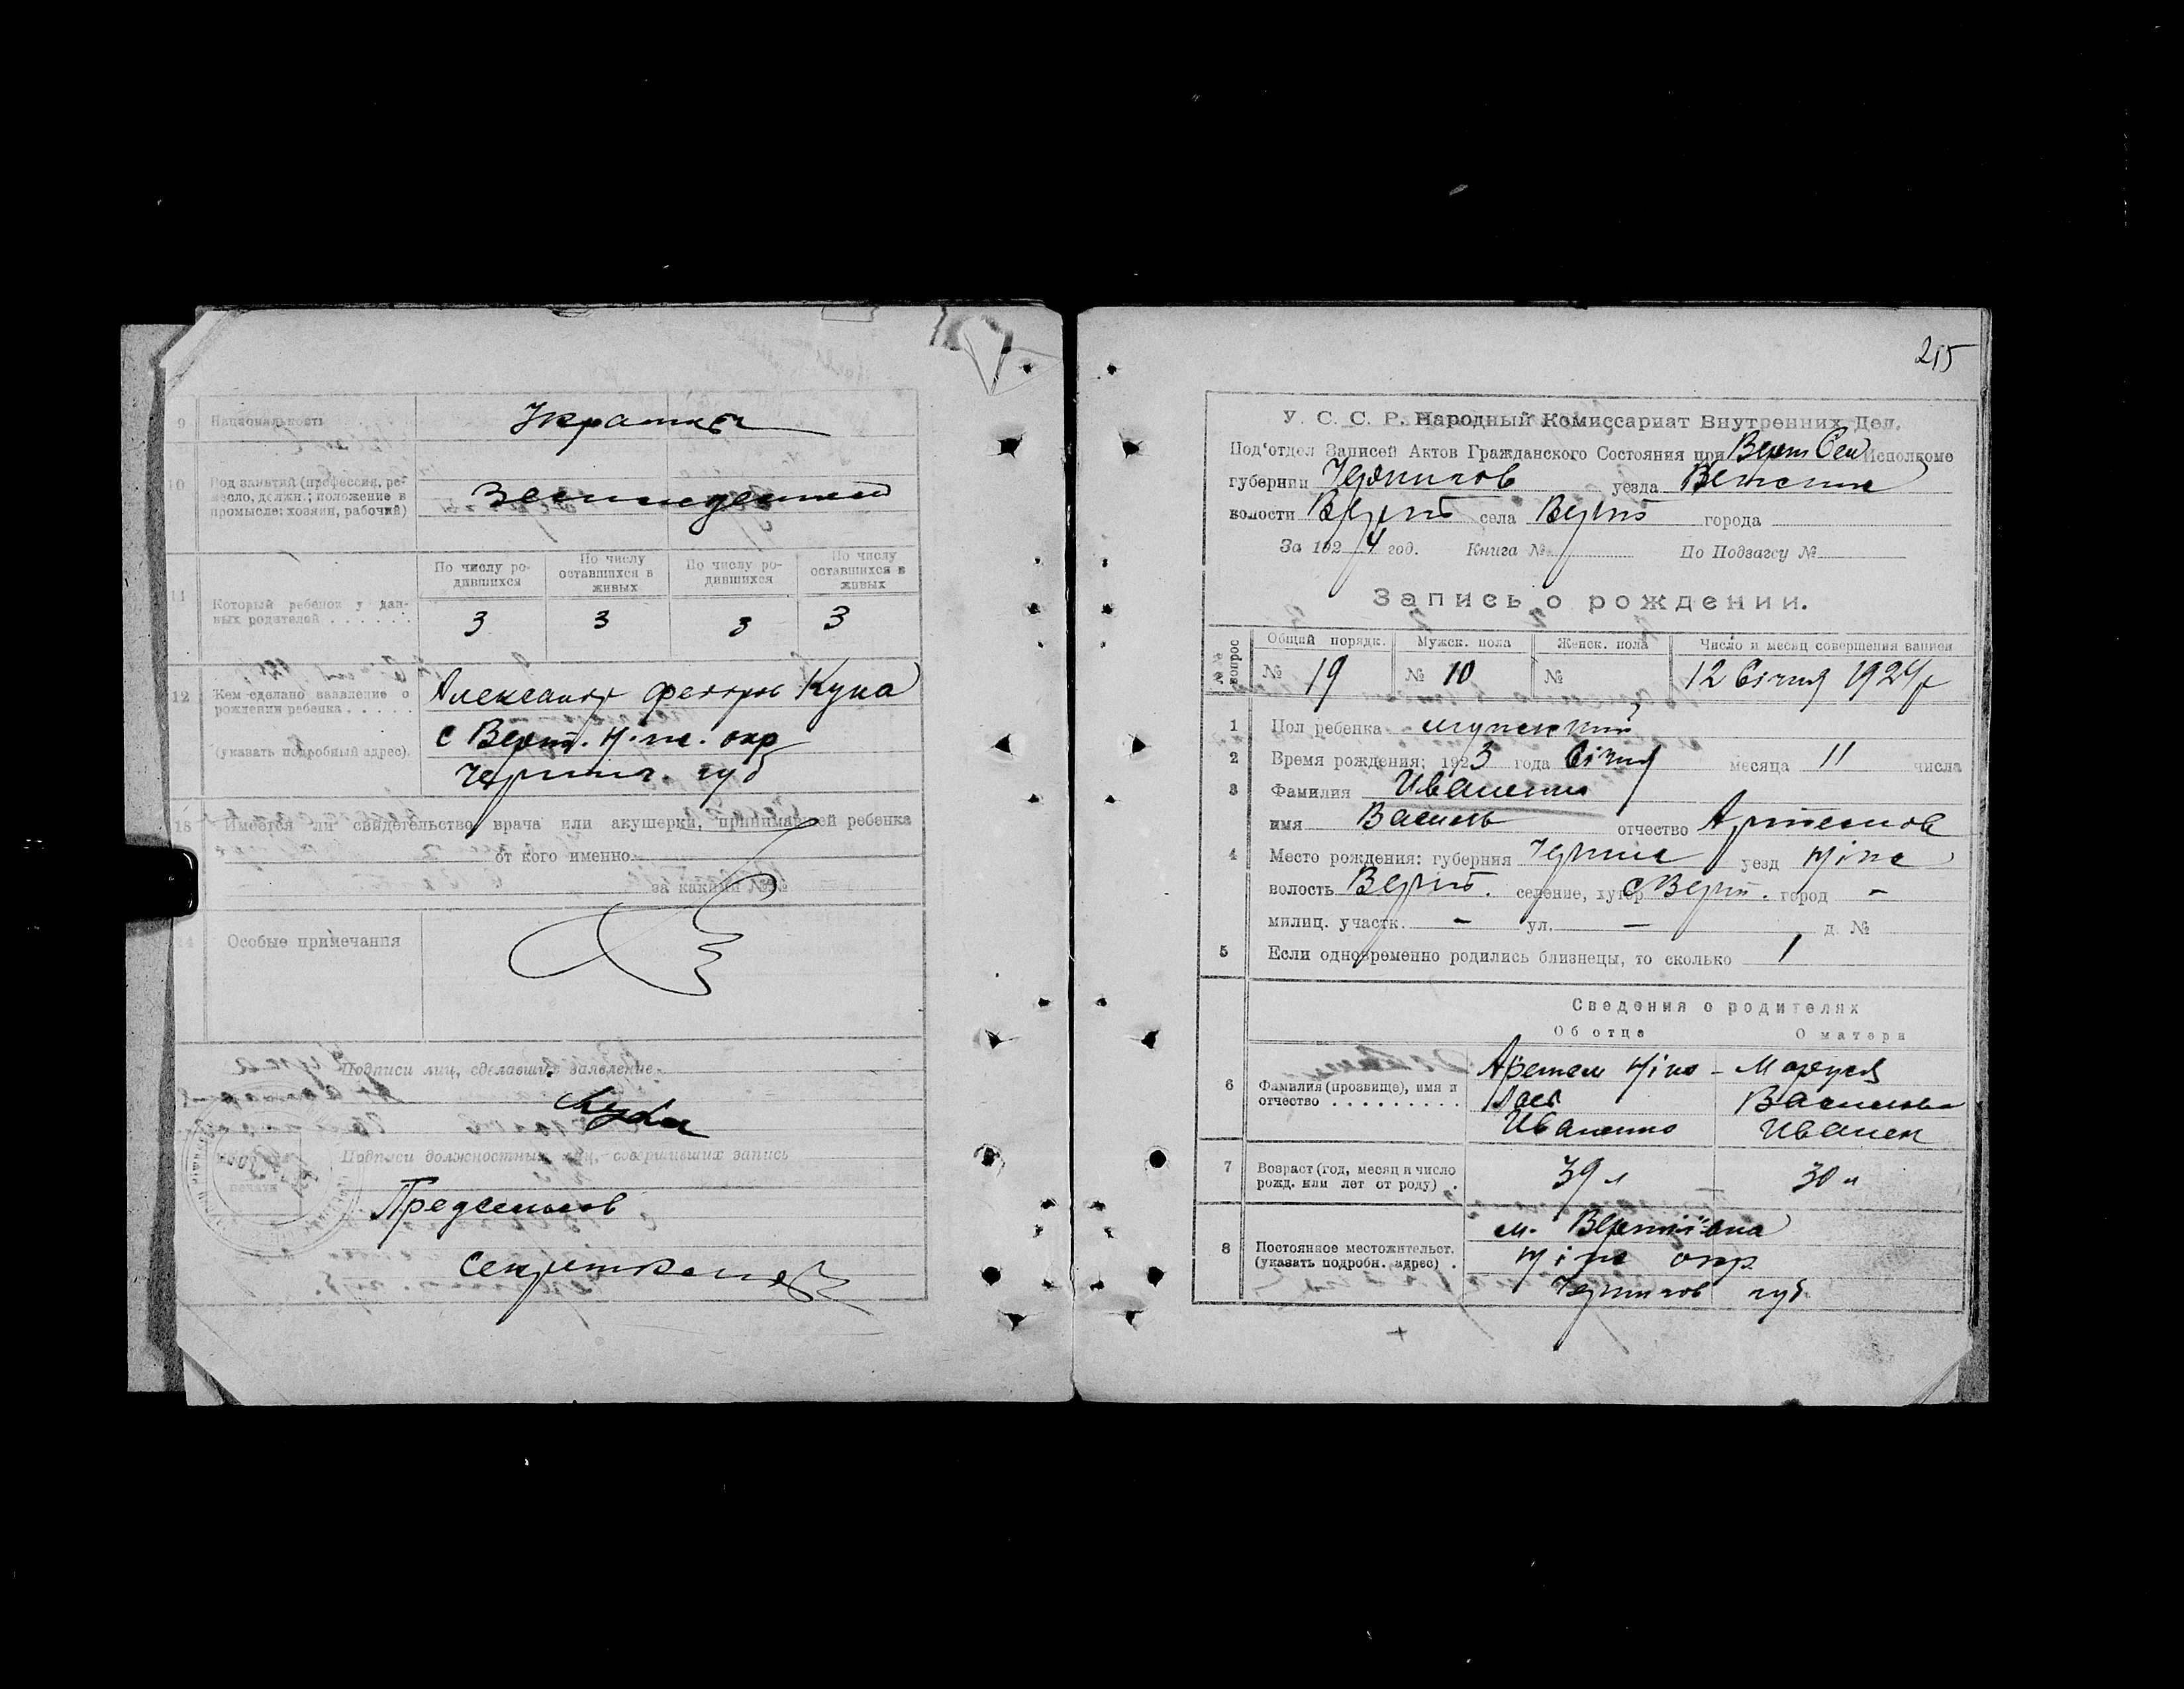 9 Национальность Украинец
10 Род занятий (профессия, ре-
месло, должн.; положение в
промысле: хозяин, рабочий)
11 Который ребенок у дан-
ных родителей . . . . . .
По числу ро-
дившихся
По числу
оставшихся в
живых
По числу ро-
дившихся
По числу
оставшихся в
живых
3 3 3 3
12 Кем сделано заявление о
рождении ребенка . . . . .
(указать подробный адрес).
Александр Федоров Купа
с Верт. Ніж. окр
Черниг. губ
13 Имеется ли свидетельство врача или акушерки, принимавшей ребенка
от кого именно
за каким №
14 Особые примечания
Подписи лиц, сделавших заявление
Подписи должностных лиц, совершивших запись
215
У. С. С. Р. Народный Комиссариат Внутренних Дел.
Под‘отдел Записей Актов Гражданского Состояния при Верт Сел Исполкоме
губернии Чернигов уезда
волости Верт села Верт города
За 1924 год. Книга № По Подзагсу №
Запись о рождении.
№№ вопрос
Общий порядк. Мужск. пола Женск. пола Число и месяц совершения записи
№ 19 № 10 № 12 Січня 1924 р
1 Пол ребенка мужеский
2 Время рождения: 1923 года Січня месяца 11 числа
3 Фамилия Иваненко
имя Василь отчество Артемов
4 Место рождения: губерния Черниг уезд Ніж
волость Верт. селение, хутор С Верт. город -
милиц. участк. - ул. - д. №
5 Если одновременно родились близнецы, то сколько 1
Сведения о родителях
Об отце О матери
6 Фамилия (прозвище), имя и
отчество . . . . . . . . .
Иваненко Иванен
7 Возраст (год, месяц и число
рожд. или лет от роду) .
39 л 30 л
8 Постоянное местожительст.
(указать подробн. адрес) .
м. Вертіївка
Ніж окр
Чернигов губ.